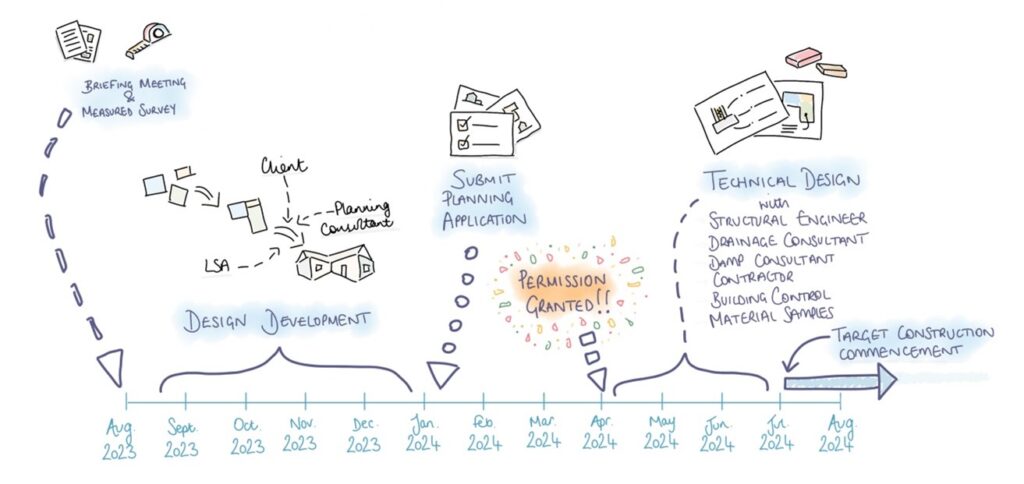 BRIEFING MEETING
&
MEASURED SURVEY
Client
Planning
Consultant
LSA
DESIGN DEVELOPMENT
SUBMIT
PLANNING
APPLICATION
PERMISSION
GRANTED!!
TECHNICAL DESIGN
with
STRUCTURAL ENGINEER
DRAINAGE CONSULTANT
DAMP CONSULTANT
CONTRACTOR
BUILDING CONTROL
MATERIAL SAMPLES
TARGET CONSTRUCTION
COMMENCEMENT
Aug. 2023
Sept. 2023
Oct. 2023
Nov. 2023
Dec. 2023
Jan. 2024
Feb. 2024
Mar. 2024
Apr. 2024
May 2024
Jun. 2024
Jul. 2024
Aug. 2024